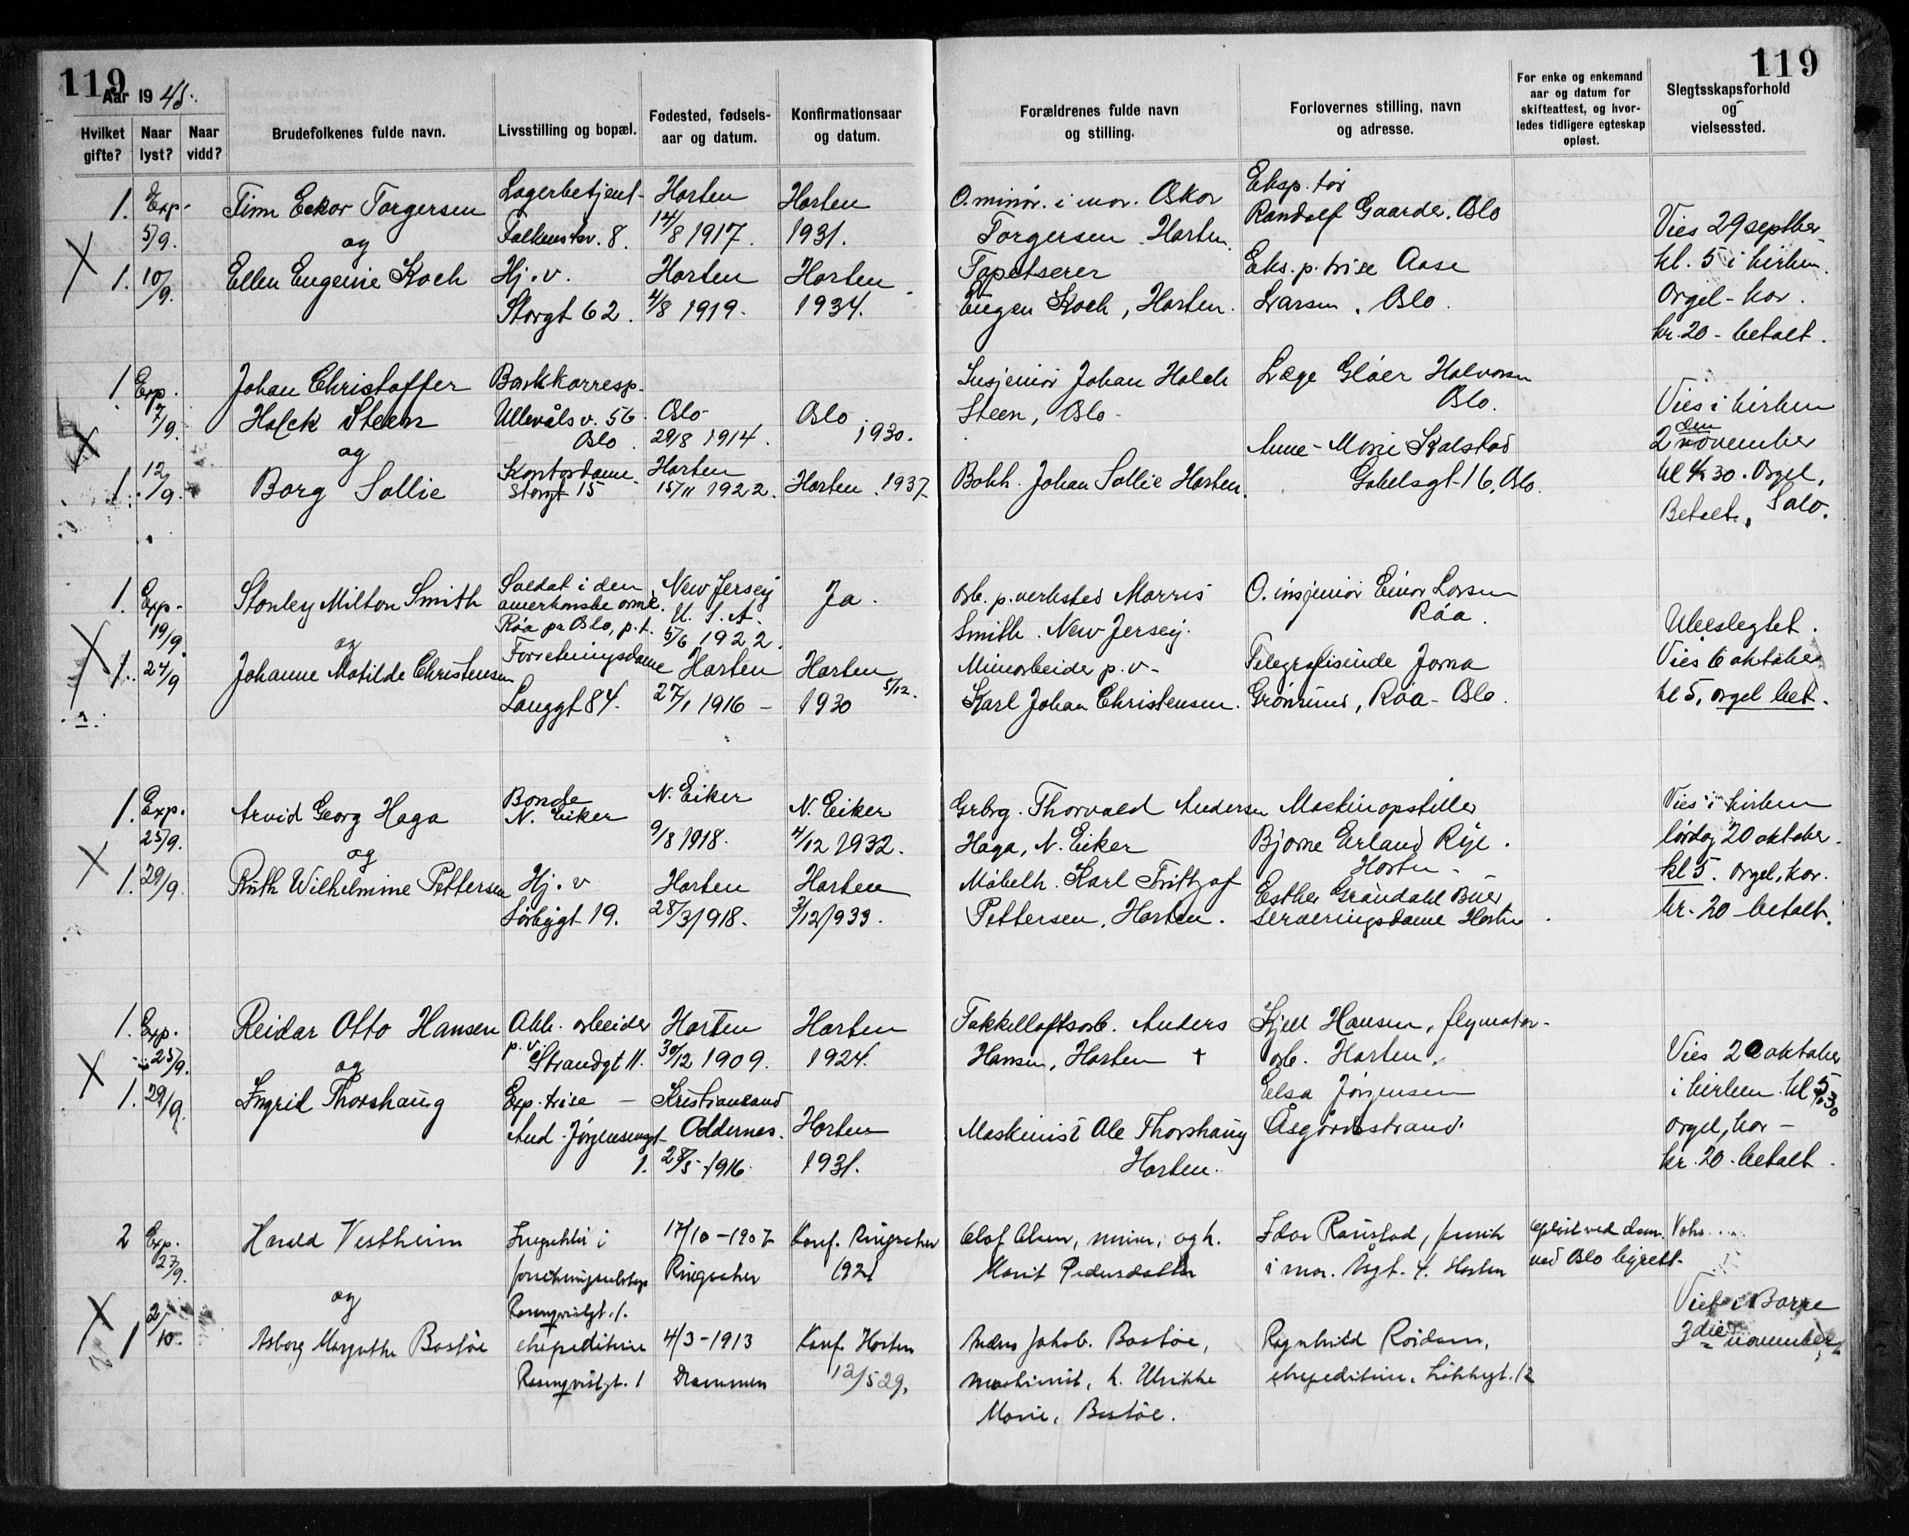 119
Aar 1945.
Hvilket gifte?
Naar lyst?
Naar vidd?
Brudefolkenes fulde navn.
Livsstilling og bopæl.
Fødested, fødsels-
aar og datum.
Konfirmationsaar
og datum.
119
Forældrenes fulde navn
og stilling.
Forlovernes stilling, navn
og adresse.
For enke og enkemand
aar og datum for
skifteattest, og hvor-
ledes tidligere egteskap
opløst.
Slegtsskapsforhold
og
vielsessted.
1. Exp. Finn Eskor Torgersen Lagerbetjent Horten Horten
5/9. og Falkenstv. 8. 14/8 1917. 1931.
1. 10/9. Ellen Eugenie Koch Hj. v. Horten Horten
Storgt 62. 4/8 1919. 1934.
O.minør. i mar. Oskar
Torgersen Horten.
Tapetserer
Eugen Koch, Horten.
Eksp. tør
Randolf Gaarder. Oslo
Eks.p. trise Aase
Larsen. Oslo.
Vies 29 septber
kl. 5 i kirken.
Orgel - kor.
kr. 20 - betalt.
1 Exp. Johan Christoffer Bankkorresp.
17/9. Holck Steen Ullevålsv. 56 Oslo Oslo
og Oslo. 29/8 1914. 1930.
1. 12/9. Borg Sollie Kontordame. Horten
Storgt 15 15/11 1922. Horten. 1937
Insjeniør Johan Holck
Steen, Oslo.
Bokh. Johan Sollie Horten.
Læge Gløer Halvorsen
Oslo.
Anne-Marie Kalstad
Gabelsgt 16, Oslo.
Vies i kirken
den
2 november
kl 4.30. Orgel,
Betalt. Salo.
1. Exp. Stanley Milton Smith Soldat i den New Jersey Ja.
amerikanske arme. U. S. A.
19/9. og Røa pr Oslo, p.t. 5/6 1922.
1. 24/9 Johanne Matilde Christensen Forretningsdame Horten Horten
Langgt 84. 27/1 1916 - 1930 5/12.
Arb. p.verksted Morris
Smith. New Jersey.
Minearbeider p. v-
Karl Johan Christensen.
O. insjeniør Einar Larsen
Røa.
Telegrafistinde Jorna
Grønlund, Røa - Oslo.
Ubeslegtet.
Vies 6 oktober
kl 5. orgel bet.
1. Exp. Arvid Georg Haga Bonde N. Eiker N. Eiker
25/9. og N. Eiker 9/8 1918. 4/12 1932.
1. 29/9. Ruth Wilhelmine Pettersen Hj. v Horten Horten
Sørbygt 19. 28/3 1918. 3/12 1933.
Grbrg. Thorvald Andersen
Haga, N. Eiker
Møbelh. Karl Frittjof
Pettersen, Horten.
Maskinopstiller
Bjarne Erland Rye.
Horten -
Esther Grøndahl Buer
Serveringsdame Horten
Vies i kirken
lørdag 20 oktober.
kl 5. orgel, kor.
kr. 20 - betalt.
1. Exp. Reidar Otto Hansen Akk. arbeider Horten Horten
25/9. og p. v. Strandgt 11. 30/12 1909. 1924.
1. 29/9. Ingrid Thorshaug Exp. trise - Kristiansand
And. Jørgensensgt Oddernes. Horten
1. 28/5 1916. 1931.
Takkelloftsarb. Anders
Hansen, Horten +
Maskinist Ole Thorshaug
Horten.
Kjell Hansen, flymotor-
arb. Horten.
Elsa Jørgensen
Åsgårdstrand.
Vies 20 oktober
i kirken. kl 5.30
orgel, kor -
kr. 20. betalt.
2 Exp. Harald Vestheim Inspektør i 17/10-1907 Konf. Ringsaker
23/9. Ringsaker 1921
og Rosenqvistgt. 1.
1 2/10. Asborg Margrethe Bastøe ekspeditrise 4/3-1913 Konf. Horten
Rosenqvistgt. 1 Drammen 12/5 29.
Olof Olsen, og h.
Marit Pedersdatter
Anders Jakob. Bastøe,
maskinist, h. Ulrikke
Marie, Bastøe.
Idar Raustad,
i mar. Åsgt. 4. Horten
Ragnhild Røidem,
ekspeditrise. 12
Oplöst ved dom
ved Oslo byrett.
Viet i Borre
3die november